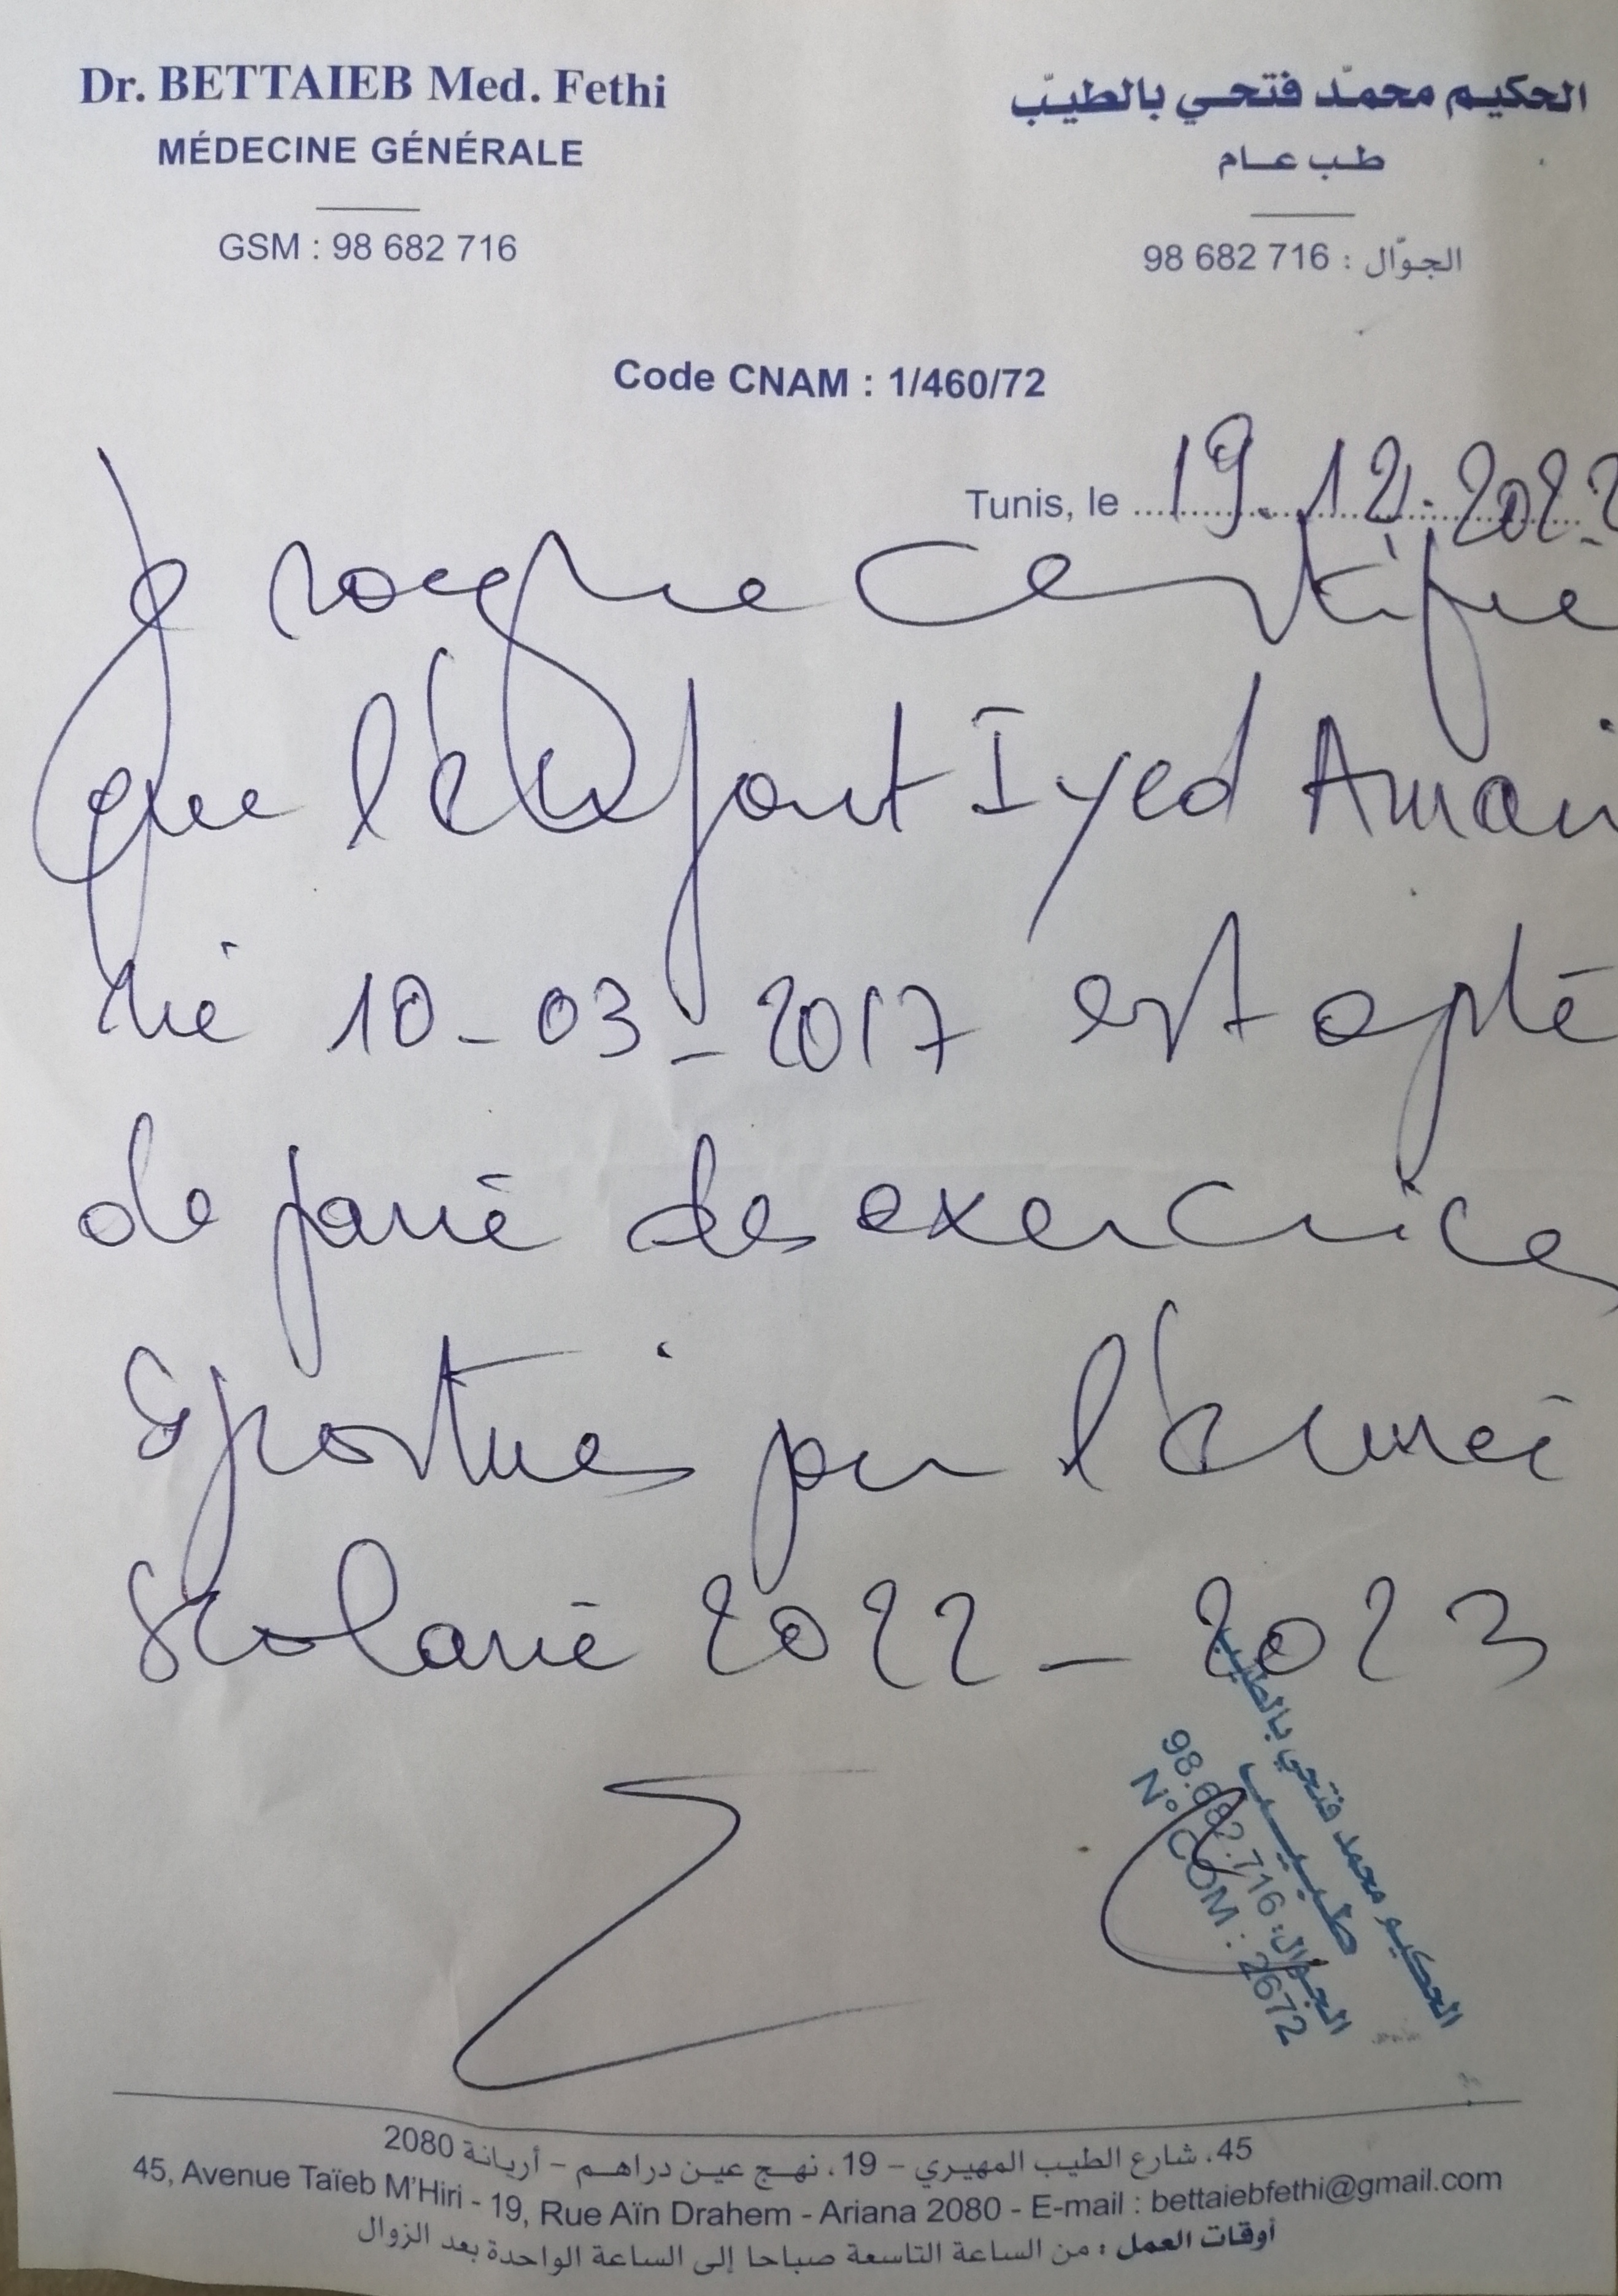 Dr. BETTAIEB Med. Fethi
MÉDECINE GÉNÉRALE
GSM : 98 682 716
الحكيم محمّد فتحي بالطيّب
طب عام
الجوّال : 98 682 716
Code CNAM : 1/460/72
Tunis, le 19.12.2022
Je certifie
que l'enfant Iyed
né 10-03-2017 est apte
de faire des exercices
Sportives pour l'année
Scolaire 2022-2023
الحكيم محمد فتحي بالطيب
طبيب
الجوال: 98.682.716
N° COM : 2672
45، شارع الطيب المهيري – 19، نهج عين دراهم – أريانة 2080
45, Avenue Taïeb M'Hiri - 19, Rue Aïn Drahem - Ariana 2080 - E-mail : bettaiebfethi@gmail.com
أوقات العمل : من الساعة التاسعة صباحا إلى الساعة الواحدة بعد الزوال